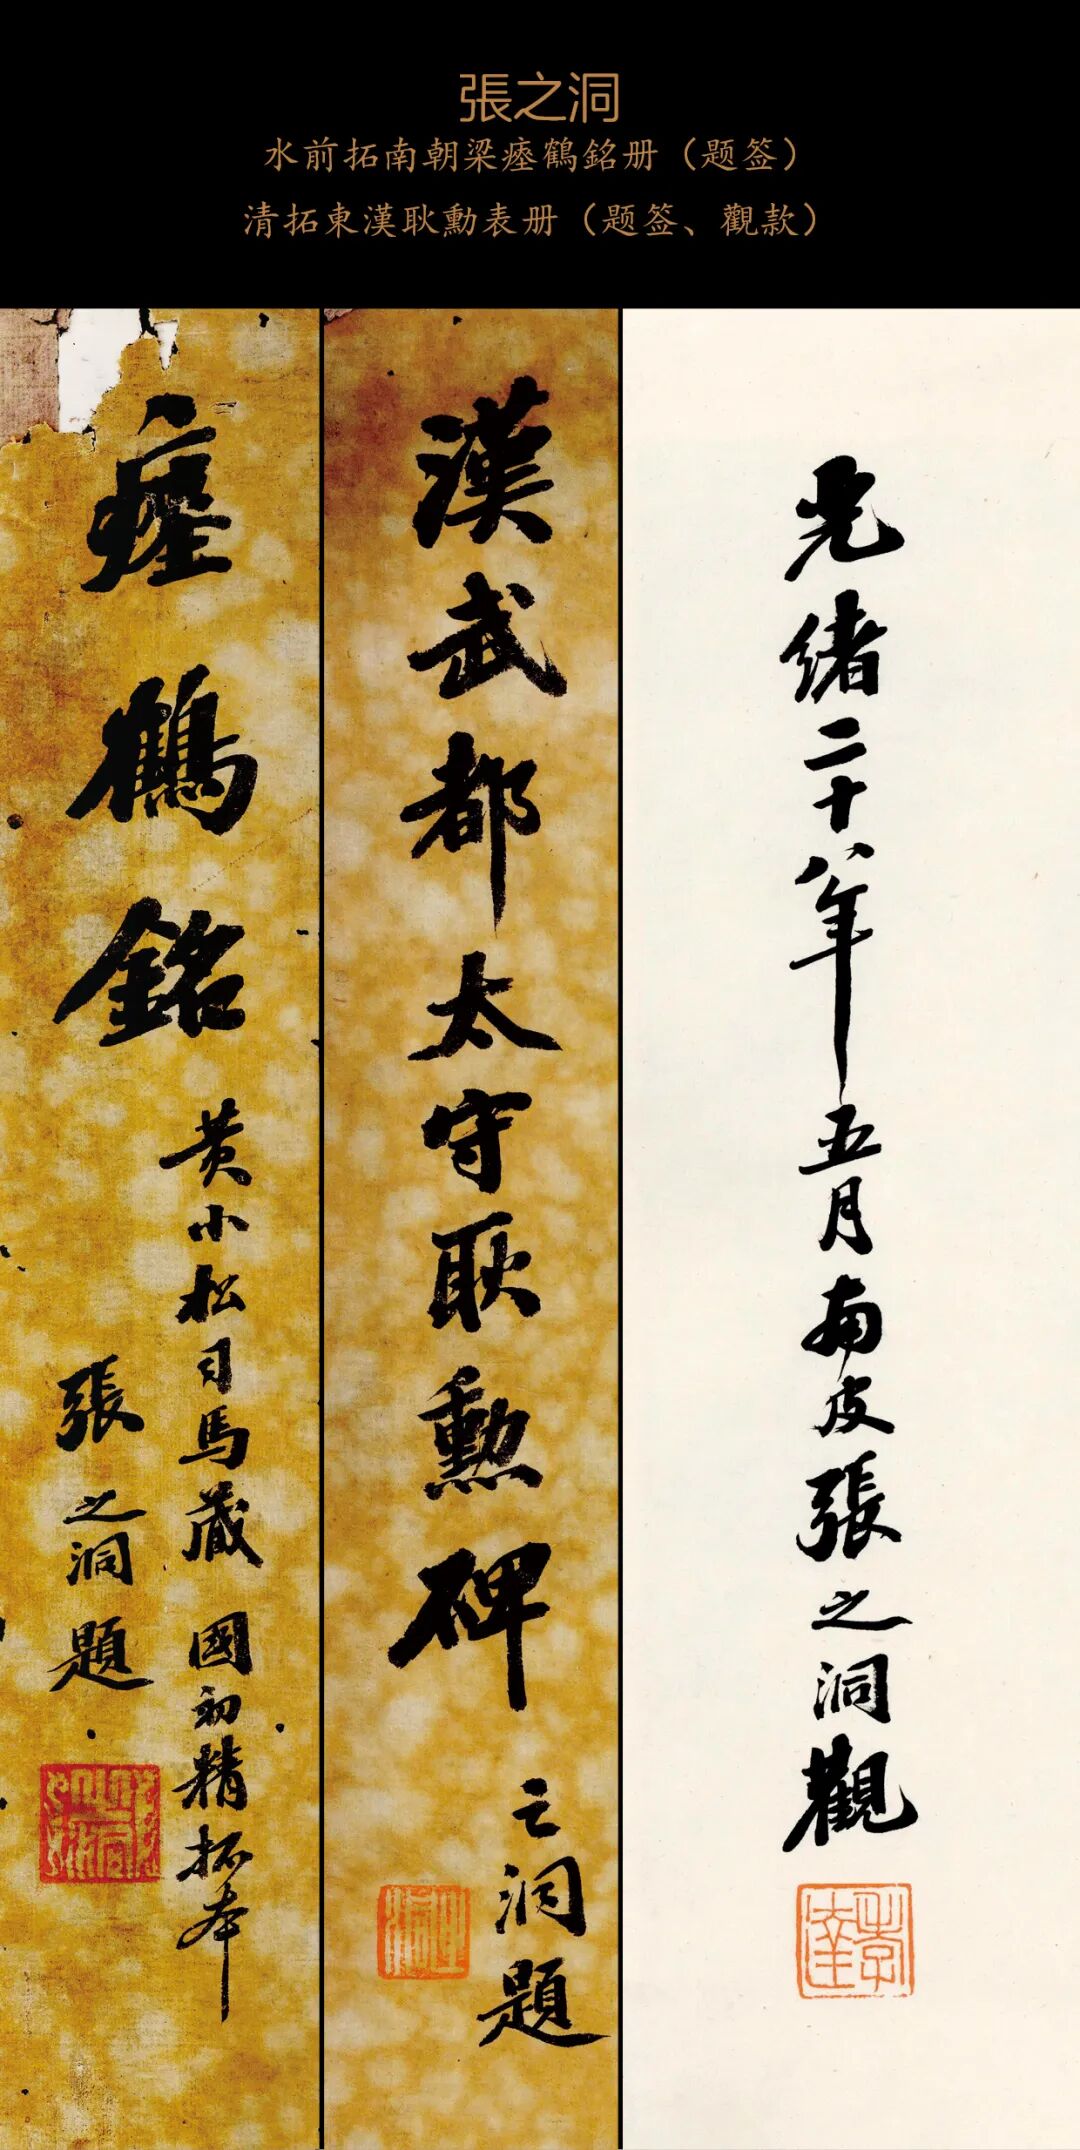 張之洞
水前拓南朝梁瘞鶴銘册（题签）
清拓東漢耿勳表册（题签、觀款）
瘞鶴銘
黄小松司馬藏 國初精拓本
張之洞題
漢武都太守耿勳碑
之洞題
之洞
光緒二十八年五月南皮張之洞觀
孝達